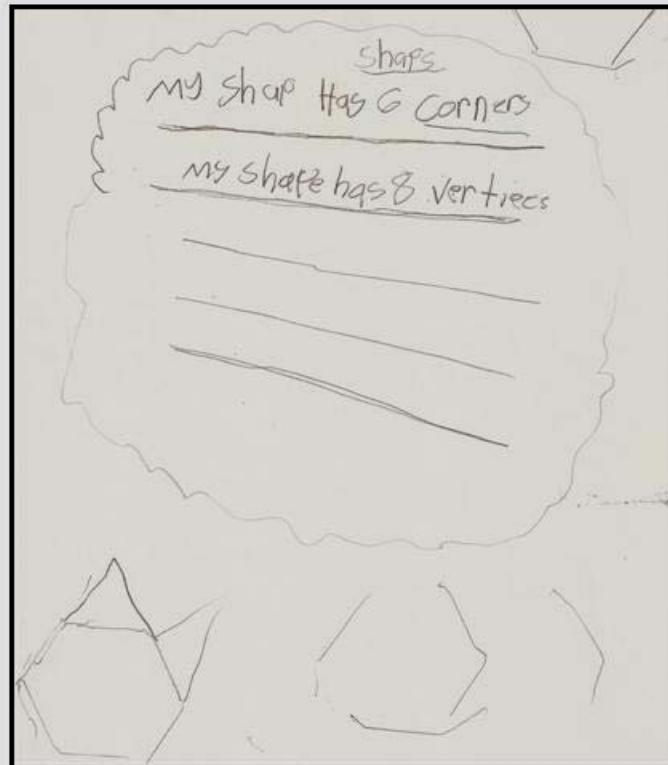 shaps
my shap Has 6 corners
my shape has 8 vertiecs